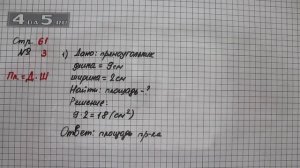 4DA5.RU
Стр. 61
№ 3
1) Дано: прямоугольник
длина = 9см
Пл. = Д. Ш
ширина = 2см
Найти: площадь - ?
Решение:
9·2 = 18 (см²)
Ответ: площадь пр-ка